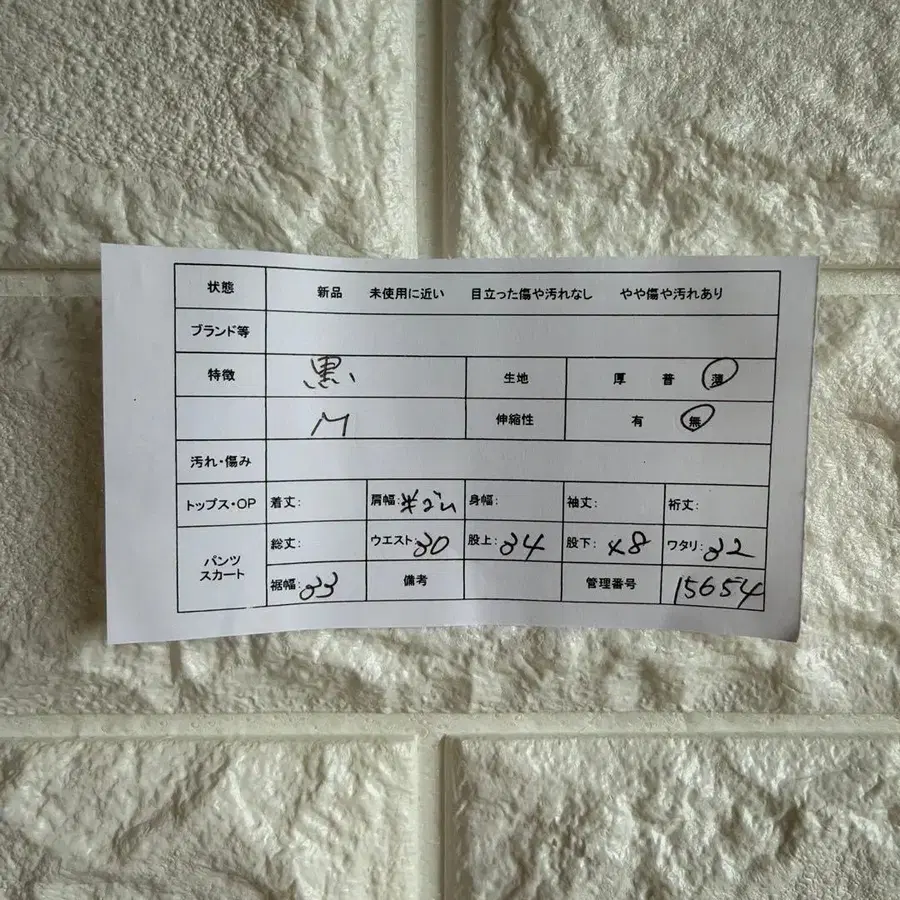 状態 新品 未使用に近い 目立った傷や汚れなし やや傷や汚れあり
ブランド等
特徴 黒 生地 厚 普 薄
M 伸縮性 有 無
汚れ・傷み
トップス・OP 着丈: 肩幅: 身幅: 袖丈: 裄丈:
パンツ スカート 総丈: ウエスト: 30 股上: 34 股下: 48 ワタリ: 32
裾幅: 33 備考 管理番号 15654